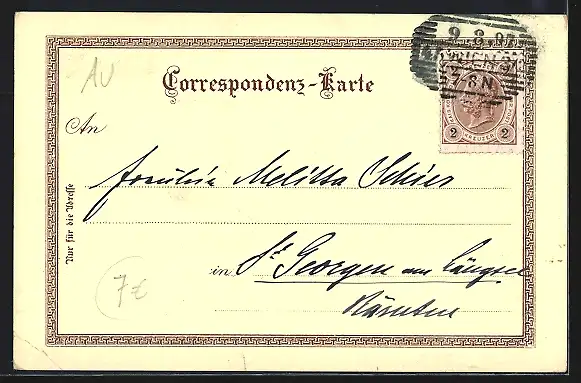 9 8 97
WIEN
7-8 N
2 KREUZER 2
AU
Correspondenz-Karte
An
Fräulein Melitta Schier
in St Georgen am Längsee
Kärnten
Nur für die Adresse
7€